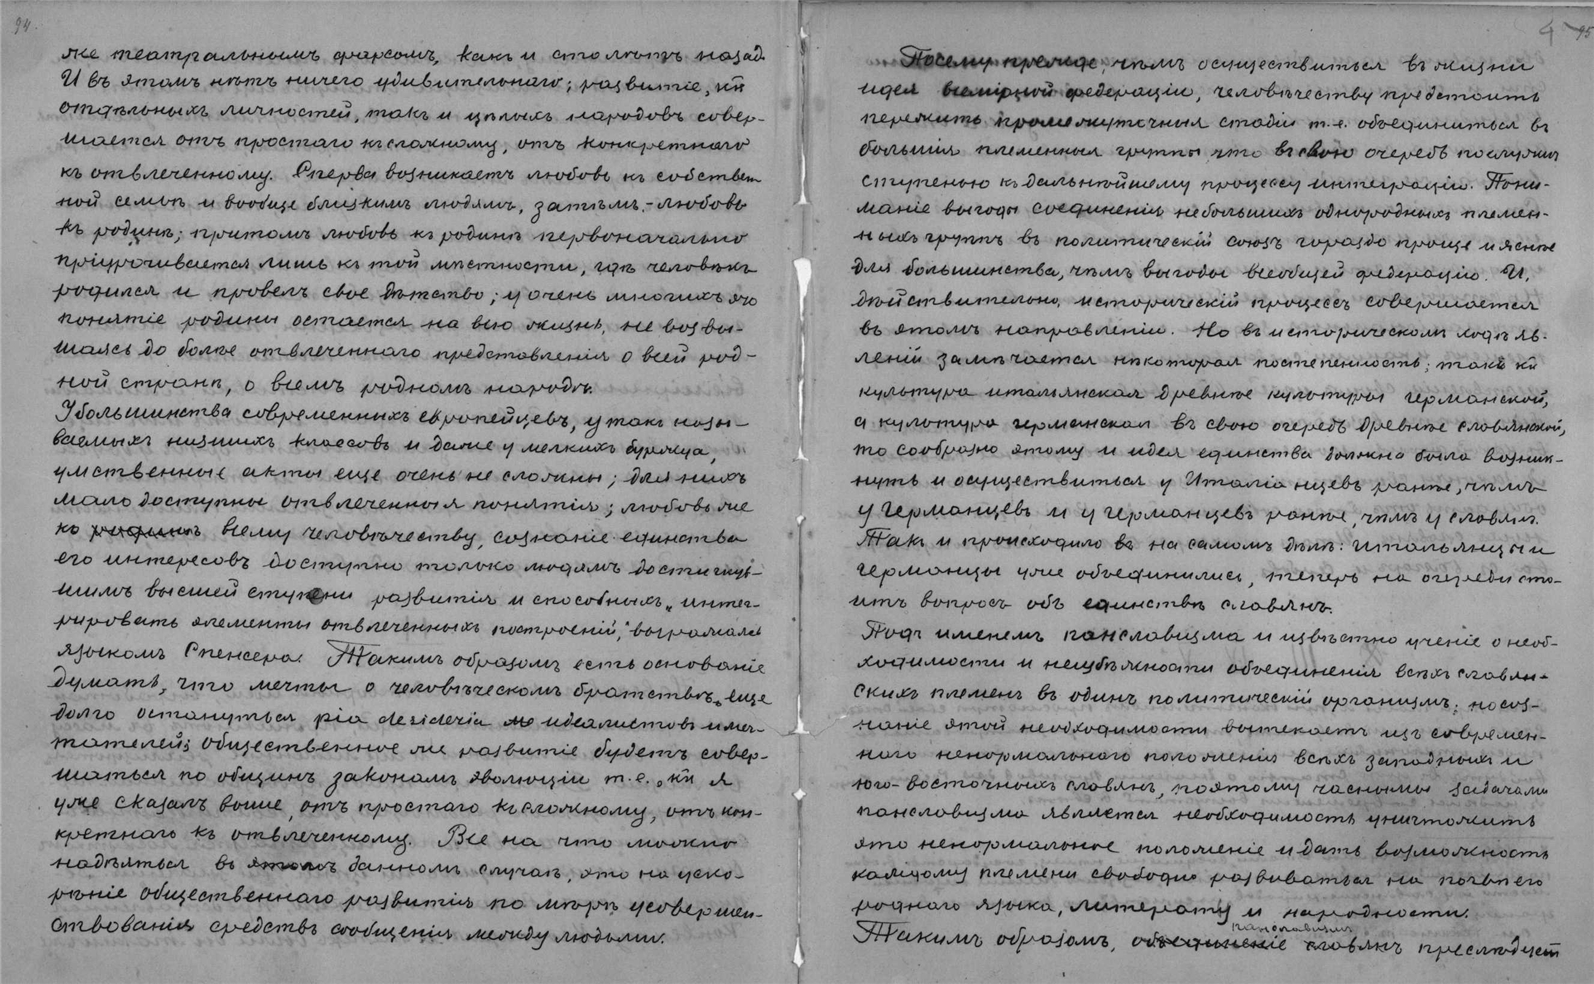 94.
же театральнымъ фарсомъ, какъ и сто лѣтъ назадъ
И въ этомъ нѣтъ ничего удивительнаго; развитіе, кк
отдѣльныхъ личностей, такъ и цѣлыхъ народовъ совер-
шается отъ простаго къ сложному, отъ конкретнаго
къ отвлеченному. Сперва возникаетъ любовь къ собствен
ной семьѣ и вообще близкимъ людямъ, затѣмъ - любовь
къ родинѣ; притомъ любовь къ родинѣ первоначально
пріурочивается лишь къ той мѣстности, гдѣ человѣкъ
родился и провелъ свое дѣтство; у очень многихъ это
понятіе родины остается на всю жизнь, не возвы-
шаясь до болѣе отвлеченнаго представленія о всей род-
ной странѣ, о всемъ родномъ народѣ.
У большинства современныхъ европейцевъ, у такъ назы-
ваемыхъ низшихъ классовъ и даже у мелкихъ буржуа,
умственные акты еще очень не сложны; для нихъ
мало доступны отвлеченныя понятія; любовь же
къ родинѣ всему человѣчеству, сознаніе единства
его интересовъ доступно только людямъ достигнув-
шимъ высшей ступени развитія и способныхъ „интег-
рировать элементы отвлеченныхъ построеній," выражаясь
языкомъ Спенсера. Такимъ образомъ есть основаніе
думать, что мечты о человѣческомъ братствѣ еще
долго останутся pia desideria идеалистовъ и меч-
тателей; общественное же развитіе будетъ совер-
шаться по общимъ законамъ эволюціи т.е. кк я
уже сказалъ выше, отъ простаго къ сложному, отъ кон-
кретнаго къ отвлеченному. Все на что можно
надѣяться въ этомъ данномъ случаѣ, это на уско-
реніе общественнаго развитія по мѣрѣ усовершен-
ствованія средствъ сообщенія между людьми.
4 95
Посему прежде, чѣмъ осуществиться въ жизни
идея всемірной федераціи, человѣчеству предстоитъ
пережить промежуточныя стадіи т.е. объединиться въ
большія племенныя группы что въ свою очередь послужитъ
ступенью къ дальнѣйшему процессу интеграціи. Пони-
маніе выгоды соединенія небольшихъ однородныхъ племен-
ныхъ группъ въ политическій союзъ гораздо проще и яснѣе
для большинства, чѣмъ выгоды всеобщей федераціи. И,
дѣйствительно, историческій процессъ совершается
въ этомъ направленіи. Но въ историческомъ ходѣ яв-
леній замѣчается нѣкоторая постепенность; такъ кк
культура итальянская древнѣе культуры германской,
а культура германская въ свою очередь древнѣе славянской,
то сообразно этому и идея единства должна была возник-
нуть и осуществиться у Италіанцевъ ранѣе, чѣмъ
у германцевъ и у германцевъ ранѣе, чѣмъ у славянъ.
Такъ и происходило въ на самомъ дѣлѣ: итальянцы и
германцы уже объединились, теперь на очереди сто-
итъ вопросъ объ единствѣ славянъ.
Подъ именемъ панславизма и извѣстно ученіе о необ-
ходимости и неизбѣжности объединенія всѣхъ славян-
скихъ племенъ въ одинъ политическій организмъ; но соз-
наніе этой необходимости вытекаетъ изъ современ-
наго ненормальнаго положенія всѣхъ западныхъ и
юго-восточныхъ славянъ, поэтому частными задачами
панславизма является необходимость уничтожить
это ненормальное положеніе и дать возможность
каждому племени свободно развиваться на почвѣ его
роднаго языка, литературы и народности.
панславизмъ
Такимъ образомъ, объединеніе славянъ преслѣдуетъ